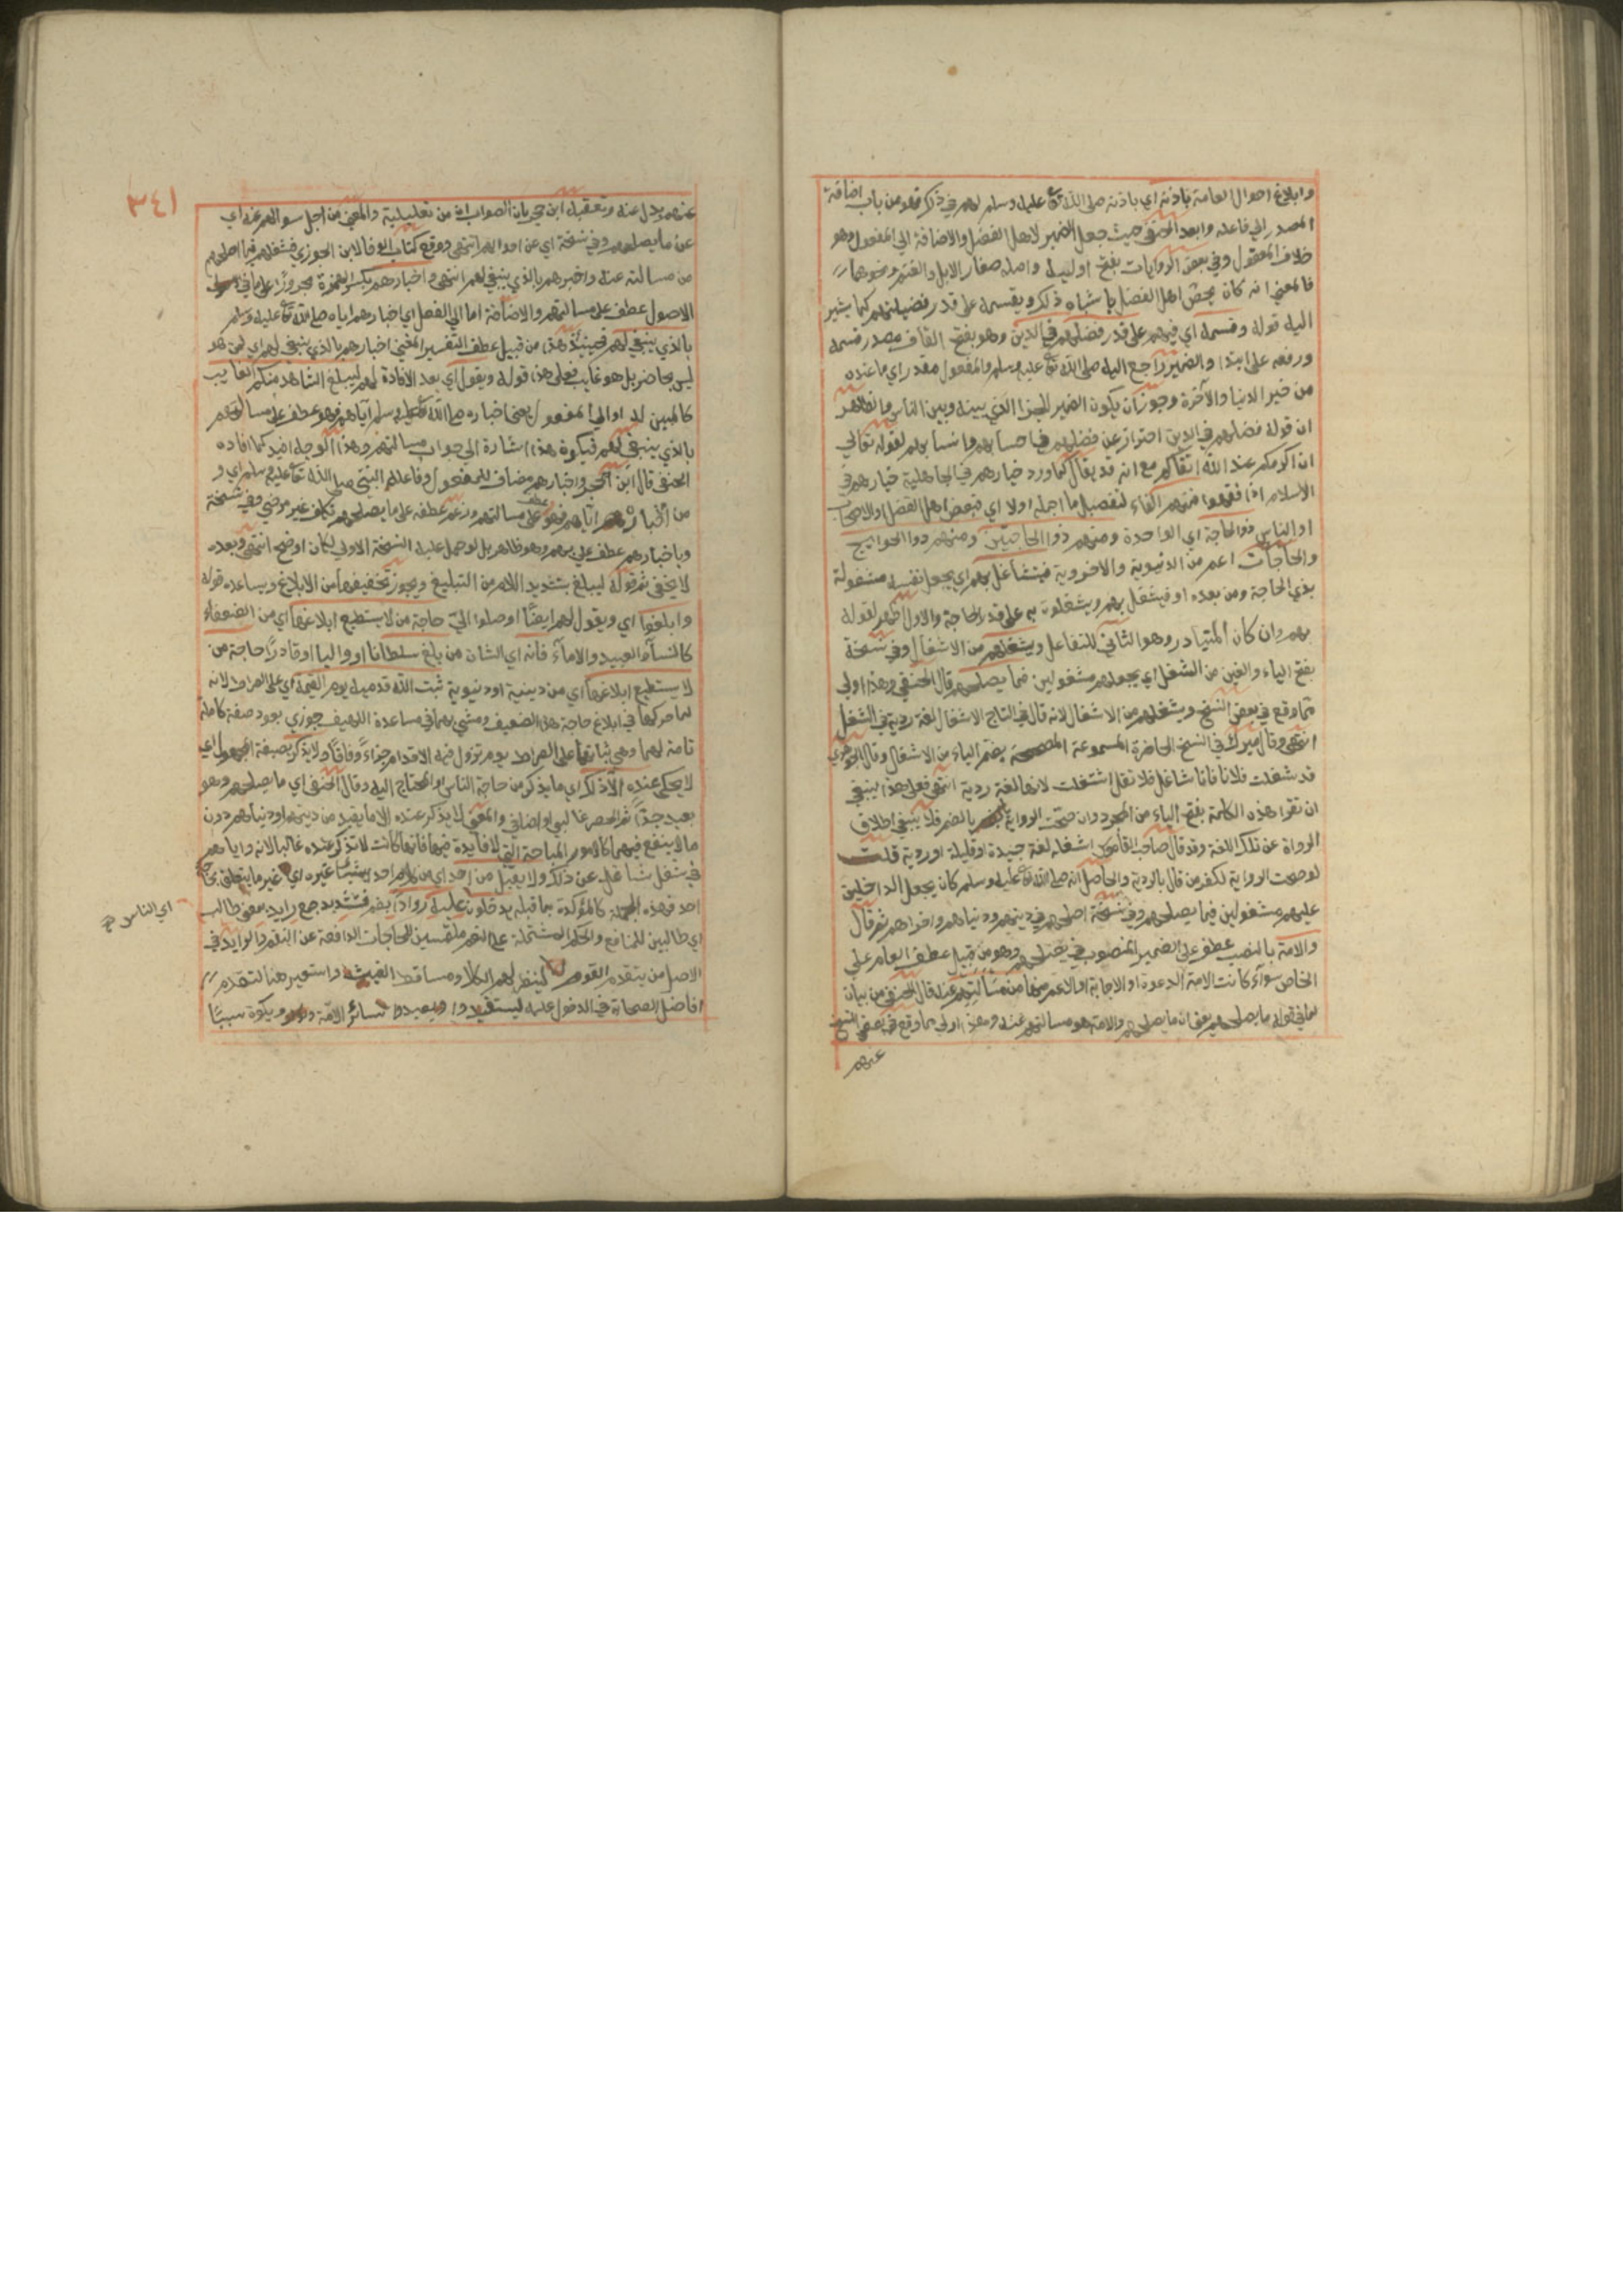 وابلاغ احوال العامة باذنه اي باذنه صلى الله تع عليه وسلم لهم في ذكر فهو من باب اضافة
المصدر الي فاعله وابعد الحنفي حيث جعل الضمير لاهل الفضل والاضافة الي المفعول وهو
خلاف المعقول وفي بعض الروايات بفتح اوليه واصله صغار الابل والغنم ونحوهما
فالمعني انه كان يخص اهل الفضل باشباه ذلك ويقسمه على قدر فضيلتهم كما يشير
اليه قوله وقسمه اي فيهم على قدر فضلهم في الدين وهو بفتح القاف مصدر قسمه
ورفعه على ابتدا والضمير راجع اليه صلى الله تع عليه وسلم والمفعول مقدر اي ما عنده
من خير الدنيا والآخرة وجوز ان يكون الضمير للجزا الذي بينه وبين الناس والظاهر
ان قوله فضلهم في الدين احتراز عن فضلهم حسابهم وانسابهم لقوله تعالي
ان اكرمكم عند الله اتقاكم مع انه قد يقال كما ورد خيارهم في الجاهلية خيارهم في
الاسلام اذا فقهوا فمنهم الفاء لتفصيل ما اجمله اولا اي فبعض اهل الفضل والاصحاب
او الناس ذو الحاجة اي الواحدة ومنهم ذوا الحاجتين ومنهم ذوا الحوايج
والحاجات اعم من الدنيوية والاخروية فيتشاغل بهم اي يجعل نفسه مشغولة
بذي الحاجة ومن بعده او فيشتغل بهم ويشغلون به على قدر الحاجة والاول اظهر لقوله
بهم وان كان المتبادر وهو الثاني للتفاعل ويشغلهم من الاشغال وفي نسخة
بفتح الياء والغين من الشغل اي يجعلهم مشغولين فيما يصلحهم قال الحنفي وهذا اولي
مما وقع في بعض النسخ ويشغلهم من الاشغال لانه قال في التاج الاشغال لغة ردية في الشغل
انتهى وقال ميرك في النسخ الحاضرة المسموعة المصححة بضم الياء من الاشغال وقال الجوهري
قد شغلت فلانا فانا شاغل فلا تقل اشتغلت لانها لغة ردية انتهى فعلى هذا ينبغي
ان تقرا هذه الكلمة بفتح الياء من المجرد وان صحت الرواية بالضم فلا ينبغي اطلاق
الرواة عن تلك اللغة وقد قال صاحب القاموس اشغله لغة جيدة او قليلة او ردية قلت
لو صحت الرواية لكفر من قال بالردية والحاصل انه صلى الله تع عليه وسلم كان يجعل الداخلين
عليهم مشغولين فيما يصلحهم وفي نسخة اصلحهم في دينهم ودنياهم واخراهم ثم قال
والامة بالنصب عطف على الضمير المنصوب في يصلحهم وهو من قبيل عطف العام على
الخاص سواء كانت الامة الدعوة او الاجابة او الاعم منهما من مسألتهم عنه قال الحنفي من بيان
لما في قوله ما يصلحهم يعني ان ما يصلحهم والامة هو مسالتهم عنه وهذا اولي مما وقع في بعض النسخ
عنهم
٣٤١
عنهم بدل عنه وتعقبه ابن حجر بان الصواب ان من تعليلية والمعني من اجل سوالهم عنه اي
عن ما يصلحهم وفي نسخة اي عن احوالهم انتهى ووقع كتاب الوفا لابن الجوزي فشغلهم فيما اصلحهم
من مسالته عنه واخبرهم بالذي ينبغي لهم انتهى واخبارهم بكسر الهمزة مجرورا على ما في
الاصول عطف على مسالتهم والاضافة اما الي الفعل اي اخبارهم اياه صلى الله تع عليه وسلم
بالذي ينبغي لهم فحينئذ هذا من قبيل عطف التفسير المعني اخبارهم بالذي ينبغي لهم اي لمن هو
ليس بحاضر بل هو غايب فعلى هذا قوله ويقول اي بعد الافادة لهم ليبلغ الشاهد منكم الغايب
كالمبين له او الي المفعول يعني اخباره صلى الله تع عليه وسلم اياهم فهو عطف على مسالتهم
بالذي ينبغي لهم فيكون هذا اشارة الي جواب مسالتهم وهذا الوجه افيد كما افاده
الحنفي قال ابن حجر واخبارهم مضاف للمفعول وفاعله النبي صلى الله تعا عليه وسلم اي و
من اخباره اياهم فهو عطف على مسالتهم وزعم عطفه على ما يصلحهم تكلف غير مرضي وفي نسخة
وباخبارهم عطف على بهم وهو ظاهر بل لو حمل عليه النسخة الاولي لكان اوضح انتهى وبعده
لا يخفى ثم قوله ليبلغ بتشديد اللام من التبليغ ويجوز تخفيفها من الابلاغ ويساعده قوله
وابلغوا اي ويقول لهم ايضا اوصلوا الي حاجة من لا يستطيع ابلاغها اي من الضعفاء
كالنساء والعبيد والاماء فانه اي الشان من بلغ سلطانا او واليا او قادرا حاجة من
لا يستطيع ابلاغها اي من دينية او دنيوية ثبت الله قدميه يوم القيمة اي على الصراط لانه
لما حركهما في ابلاغ حاجة هذا الضعيف ومشى بهما في مساعدة اللهيف جوزي بعود صفة كاملة
تامة لهما وهي ثباتهما على الصراط يوم تزول فيه الاقدام جزاء وفاقا ولا يذكر بصيغة المجهول اي
لا يحكى عنده الا ذلك اي ما يذكر من حاجة الناس او المحتاج اليه وقال الحنفي اي ما يصلحهم وهو
بعيد جدا ثم الحصر غالبي او اضافي والمعني لا يذكر عنده الا ما يفيد من دينهم او دنياهم دون
ما لا ينفع فيهما كالامور المباحة التي لا فايدة فيها فانها كانت لا تذكر عنده غالبا لانه واياهم
في شغل شاغل عن ذلك ولا يقبل من احد اي من كلام احد شيئا غيره اي غير ما يتعلق بحاجة
احد فهذه الجملة كالمؤكدة بما قبله يدخلون عليه روادا بضم فتشديد جمع رايد بمعني طالب
اي الناس صح
اي طالبين للمنافع والحكم المشتملة على النعم ملتمسين للحاجات الدافعة عن النقم والرايد في
الاصل من يتقدم القوم لينظر لهم الكلأ ومساقط الغيث واستعير هنا لتقدم
افاضل الصحابة في الدخول عليه ليستفيدوا ويفيدوا لسائر الامة ويكون سببا